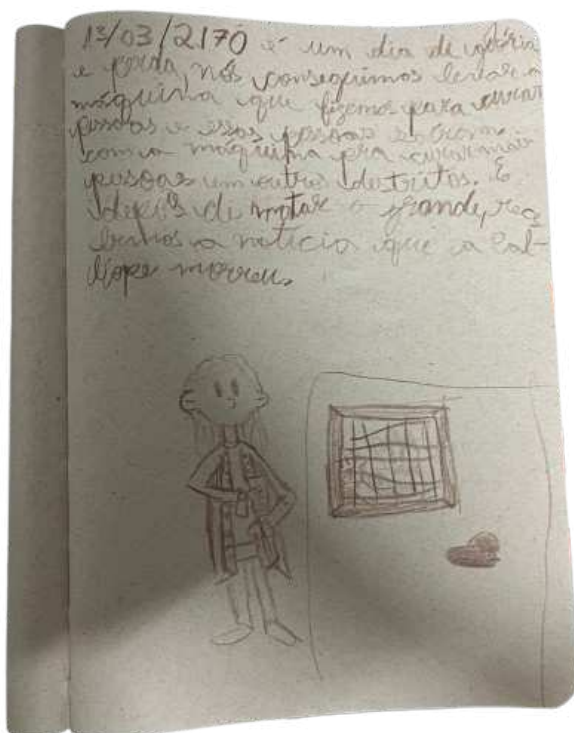 13/03/2170 é um dia de glória
e perda, nós conseguimos levar a
máquina que fizemos para curar
pessoas e essas pessoas
com a máquina pra curar mais
pessoas um outros distritos. E
depois de matar o grande, rece
bemos a notícia que a Cal-
líope morreu.